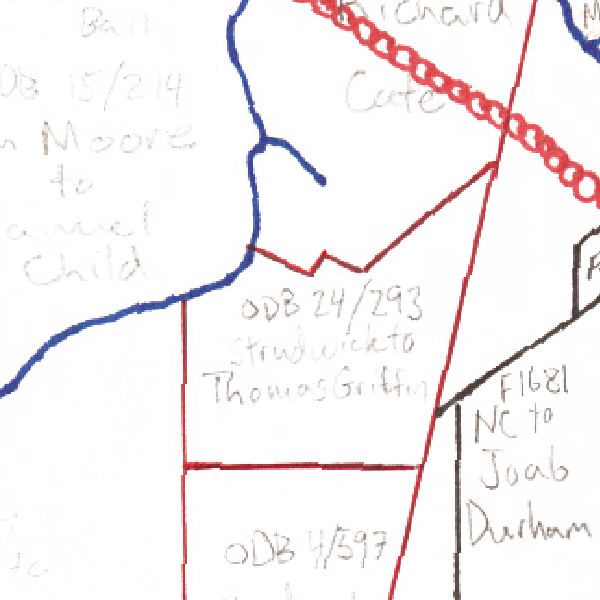 Ball
15/214
Moore
to
Child
Richard
Cate
ODB 24/293
Strudwick to
Thomas Griffin
F1681
NC to
Joab
Durham
ODB 4/597
to